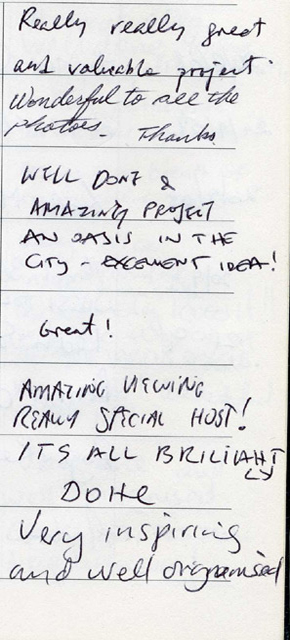 Really really great
and valuable project.
Wonderful to see the
photoes. Thanks.
WELL DONE &
AMAZING PROJECT
AN OASIS IN THE
CITY - EXCELLENT IDEA!
Great!
AMAZING VIEWING
REALLY SPECIAL HOST!
ITS ALL BRILIANT
LY
DONE
Very inspiring
and well organised